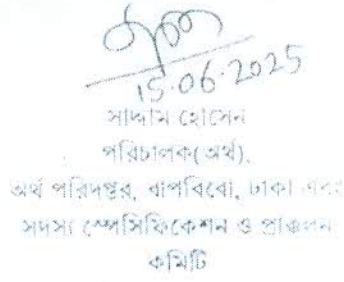 15.06.2025
সাদ্দাম হোসেন
পরিচালক(অর্থ),
অর্থ পরিদপ্তর, বাপবিবো, ঢাকা এবং
সদস্য স্পেসিফিকেশন ও প্রাক্কলন
কমিটি